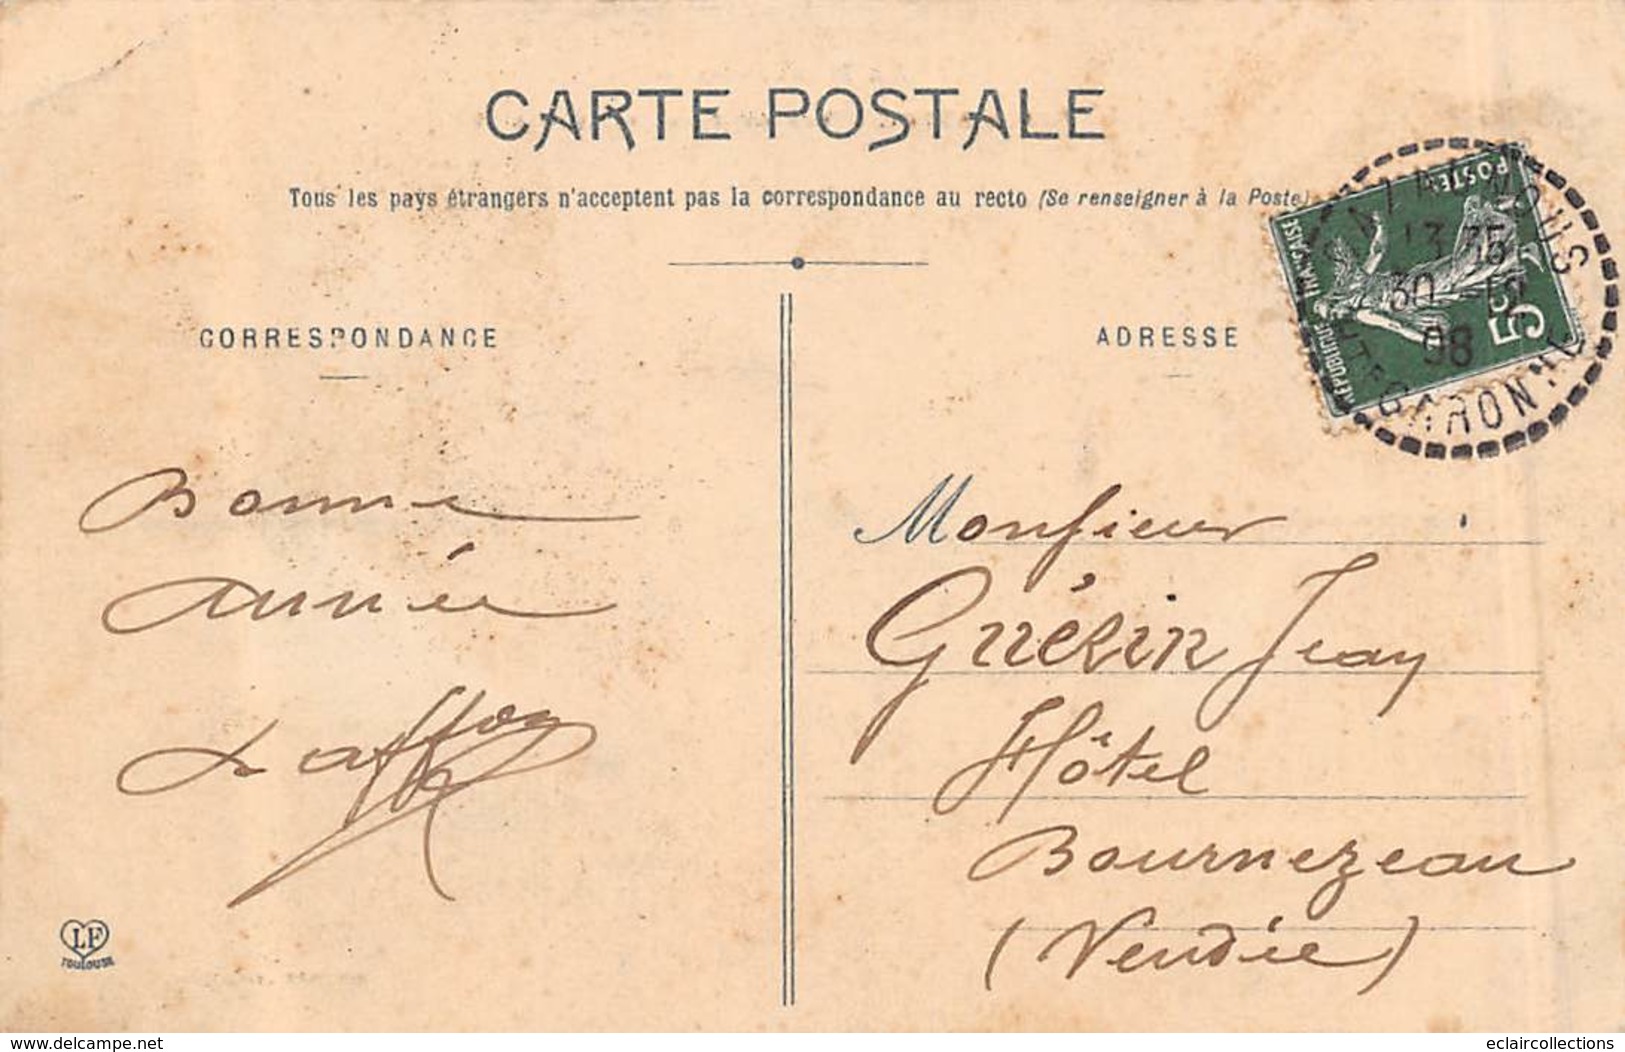 CARTE POSTALE
Tous les pays étrangers n'acceptent pas la correspondance au recto (Se renseigner à la Poste)
CORRESPONDANCE
ADRESSE
POSTES
RÉPUBLIQUE FRANÇAISE
5c
13 35
30 12
08
HTE GARONNE
Bonne
Année
Monsieur
Guérin Jean
Hôtel
Bournezeau
(Vendée)
LF
TOULOUSE
www.delcampe.net
eclaircollections